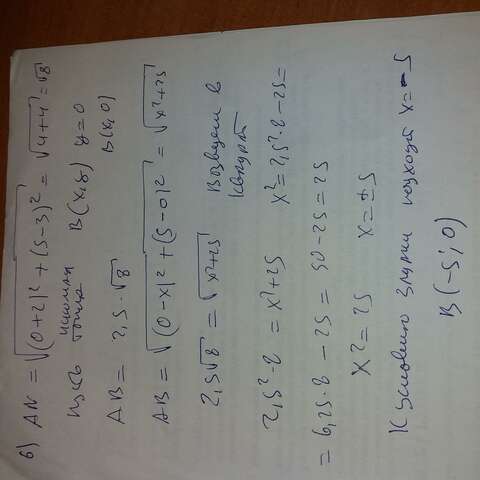 б) AN = √(0+2)² + (5-3)² = √4+4 = √8
пусть искомая точка B(x,y) y=0
AB = 2,5·√8 B(x,0)
AB = √(0-x)² + (5-0)² = √x²+25
2,5√8 = √x²+25 Возведем в квадрат
2,5²·8 = x²+25 x² = 2,5²·8-25 =
= 6,25·8 - 25 = 50-25 = 25
x² = 25 x = ±5
К условию задачи подходит x = -5
B(-5; 0)